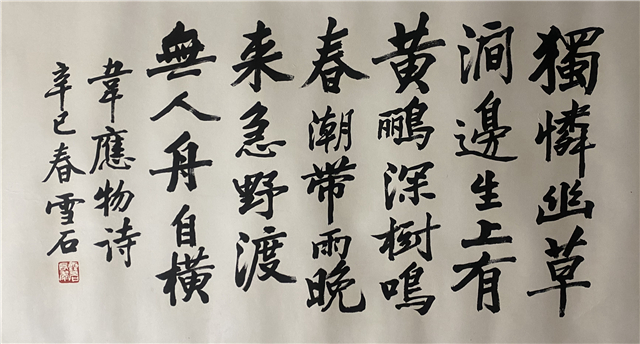 獨憐幽草
澗邊生上有
黃鸝深樹鳴
春潮帶雨晚
来急野渡
無人舟自橫
韋應物詩
辛巳春雪石